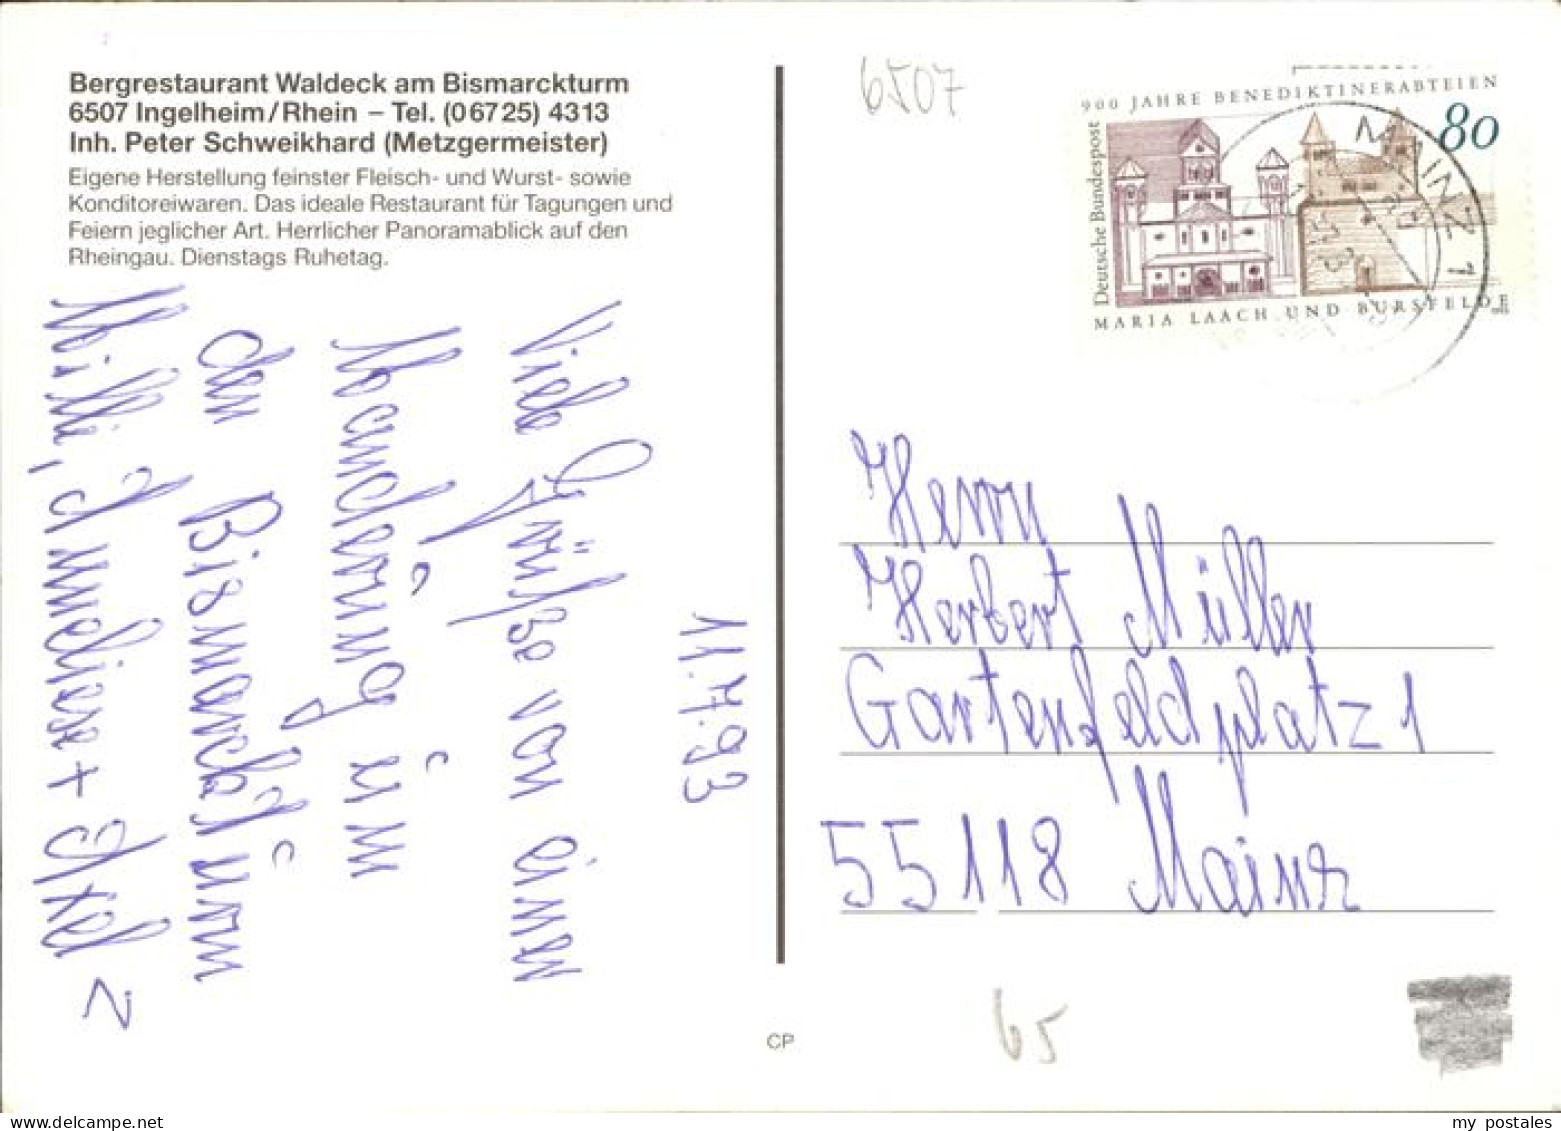 Bergrestaurant Waldeck am Bismarckturm
6507 Ingelheim/Rhein – Tel. (06725) 4313
Inh. Peter Schweikhard (Metzgermeister)
Eigene Herstellung feinster Fleisch- und Wurst- sowie
Konditoreiwaren. Das ideale Restaurant für Tagungen und
Feiern jeglicher Art. Herrlicher Panoramablick auf den
Rheingau. Dienstags Ruhetag.
11.7.93
Viele Grüße von einer
Wanderung um
den Bismarckturm
Willi, Anneliese + Axel
6507
900 JAHRE BENEDIKTINERABTEIEN
80
Deutsche Bundespost
MARIA LAACH UND BURSFELDE
MAINZ 1
Herrn
Herbert Müller
Gartenfeldplatz 1
55118 Mainz
65
CP
my postales